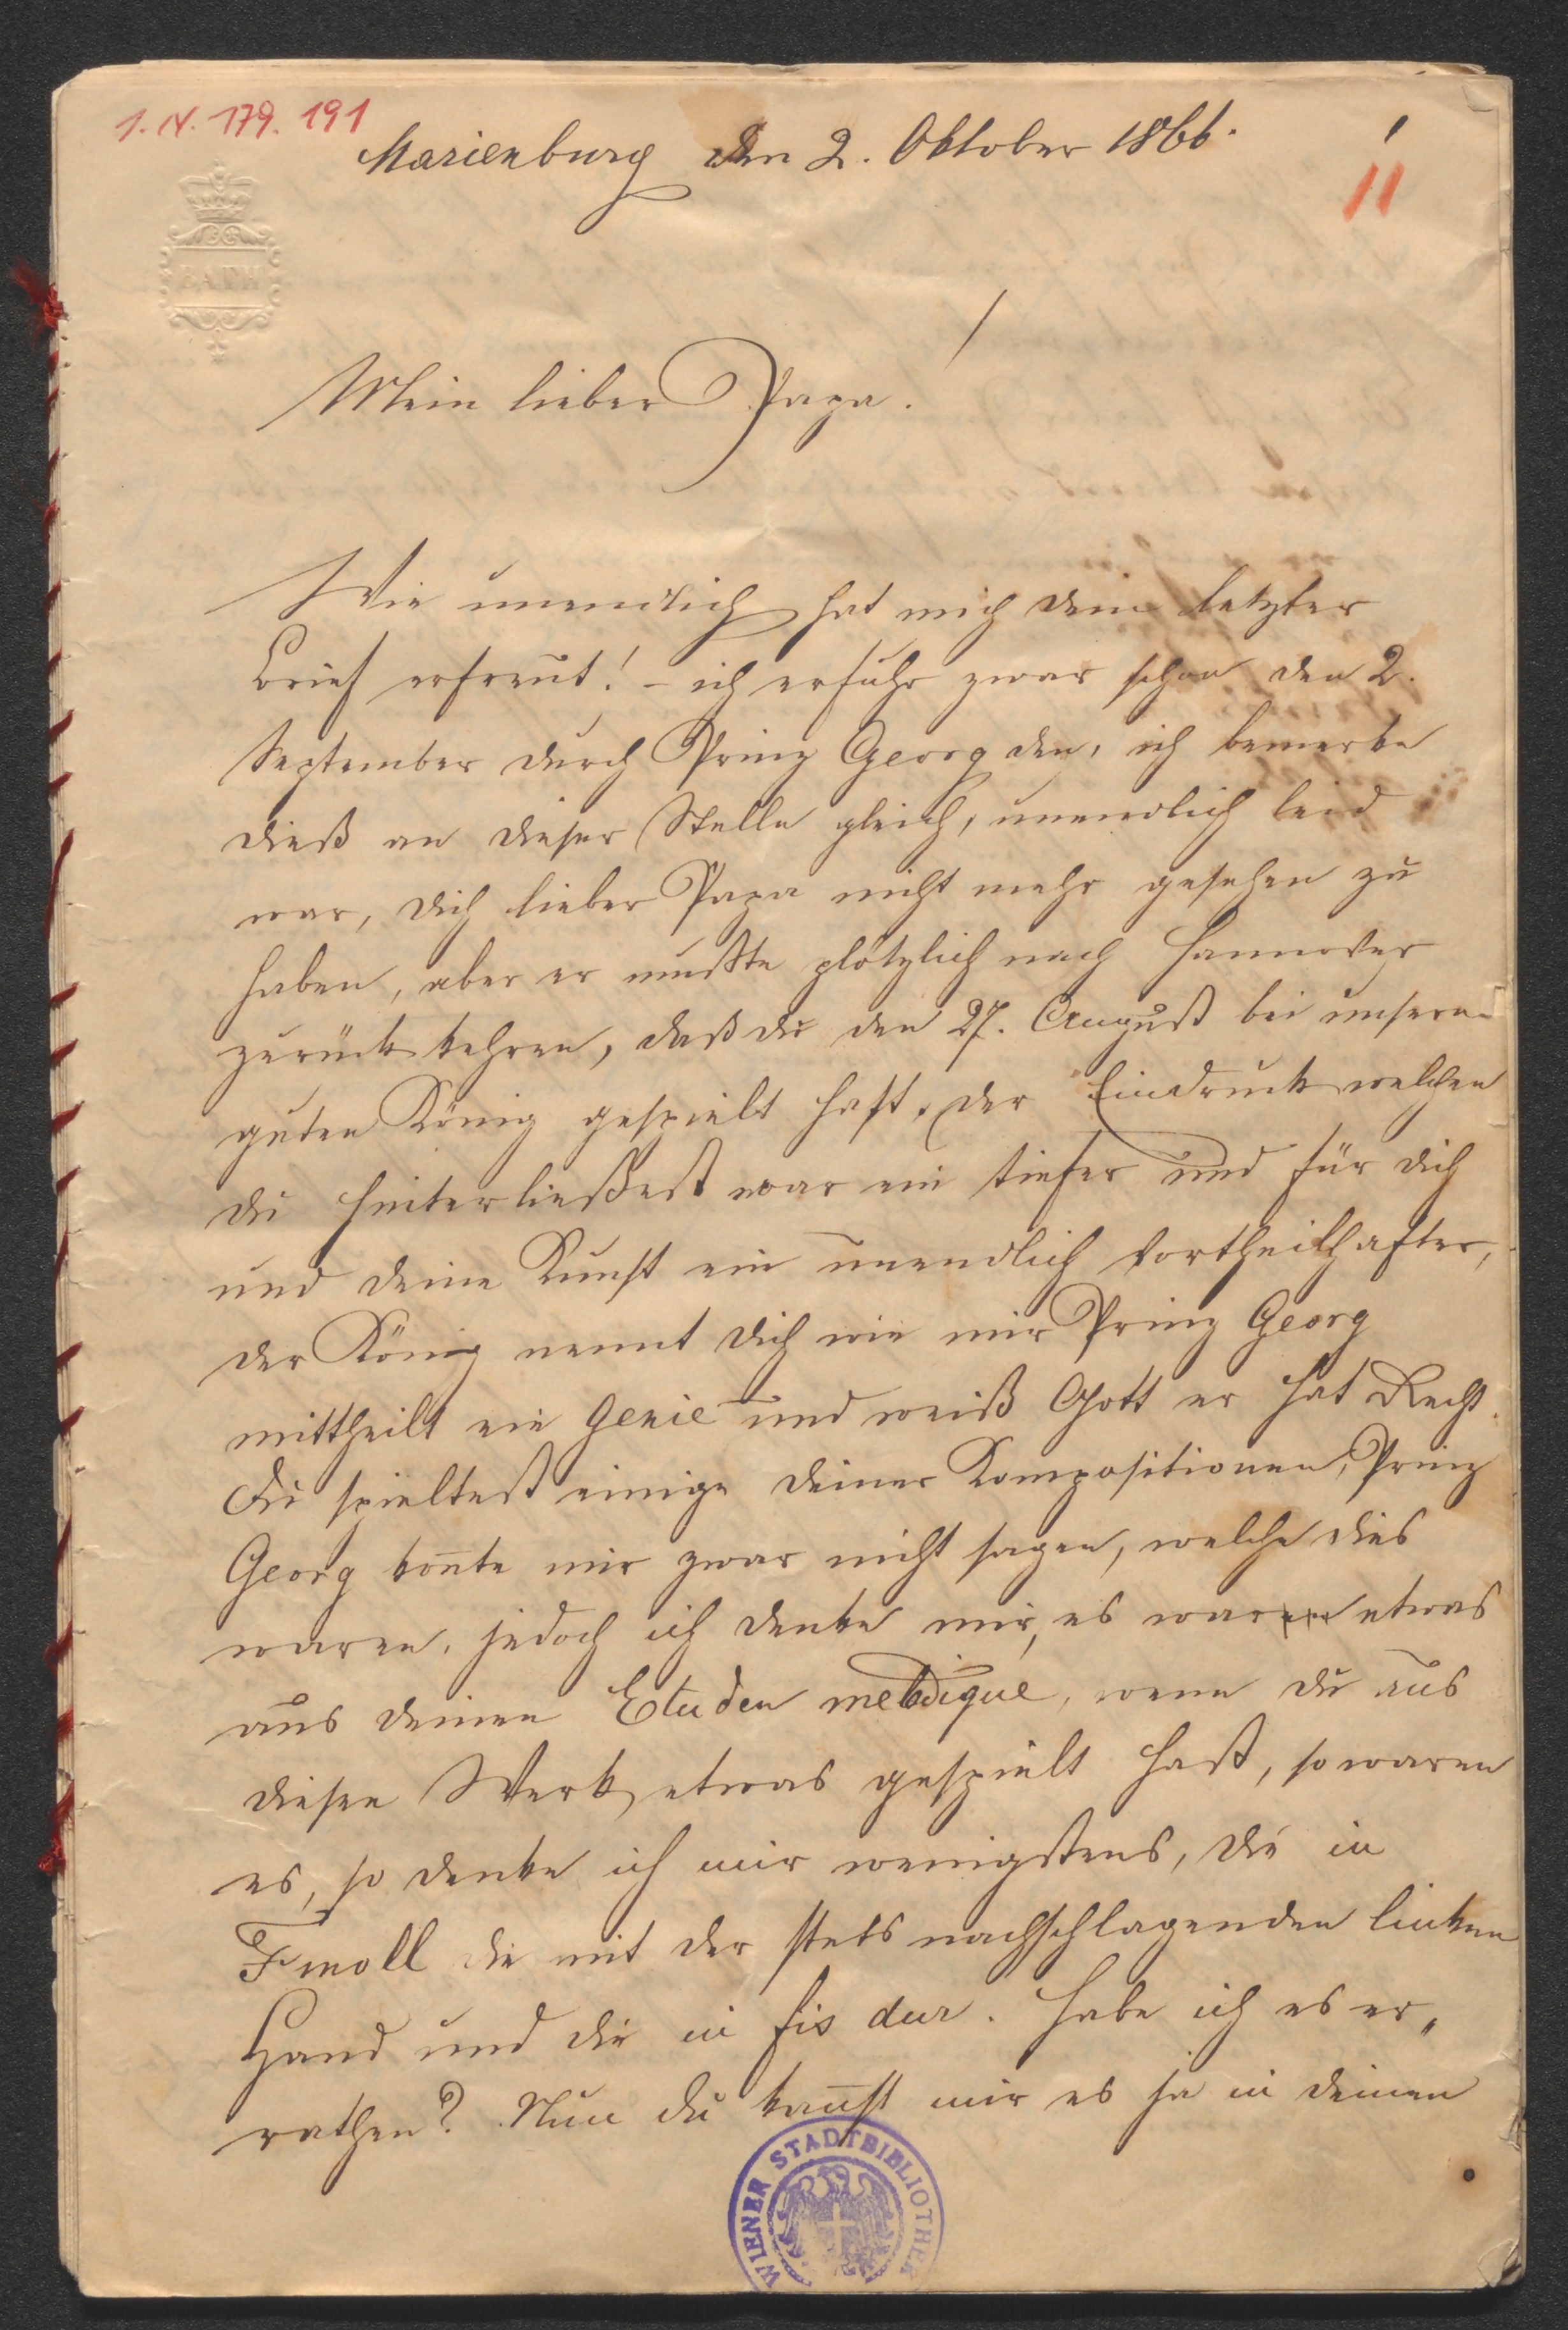 I. N. 179. 191
Marienburg den 2. Oktober 1866.
11
BATH
Mein lieber Papa.
Wie unendlich hat mich dein letzter
Brief erfreut! – ich erfuhr zwar schon den 2.
September durch Prinz Georg den, ich bemerke
dieß an dieser Stelle gleich, unendlich leid
war, dich lieber Papa nicht mehr gesehen zu
haben, aber er mußte plötzlich nach Hannover
zurück kehren, daß du den 27. August bei unsern
guten König gespielt hast, der Eindruck welchen
du hinterließest war ein tiefer und für dich
und deine Kunst ein unendlich vortheilhafter,
der König nennt dich wie mir Prinz Georg
mittheilt ein Genie und weiß Gott er hat Recht.
Du spieltest einige deiner Kompositionen, Prinz
Georg kon̄te mir zwar nicht sagen, welche dies
waren, jedoch ich denke mir, es war etwas
aus deinen Etuden melodique, wenn du aus
diesen Werk etwas gespielt hast, so waren
es, so denke ich mir wenigstens, die in
F moll die mit der stets nachschlagenden linken
Hand und die in fis dur. Habe ich es er„
rathen? Nun du kan̄st mir es ja in deinen
WIENER STADTBIBLIOTHEK